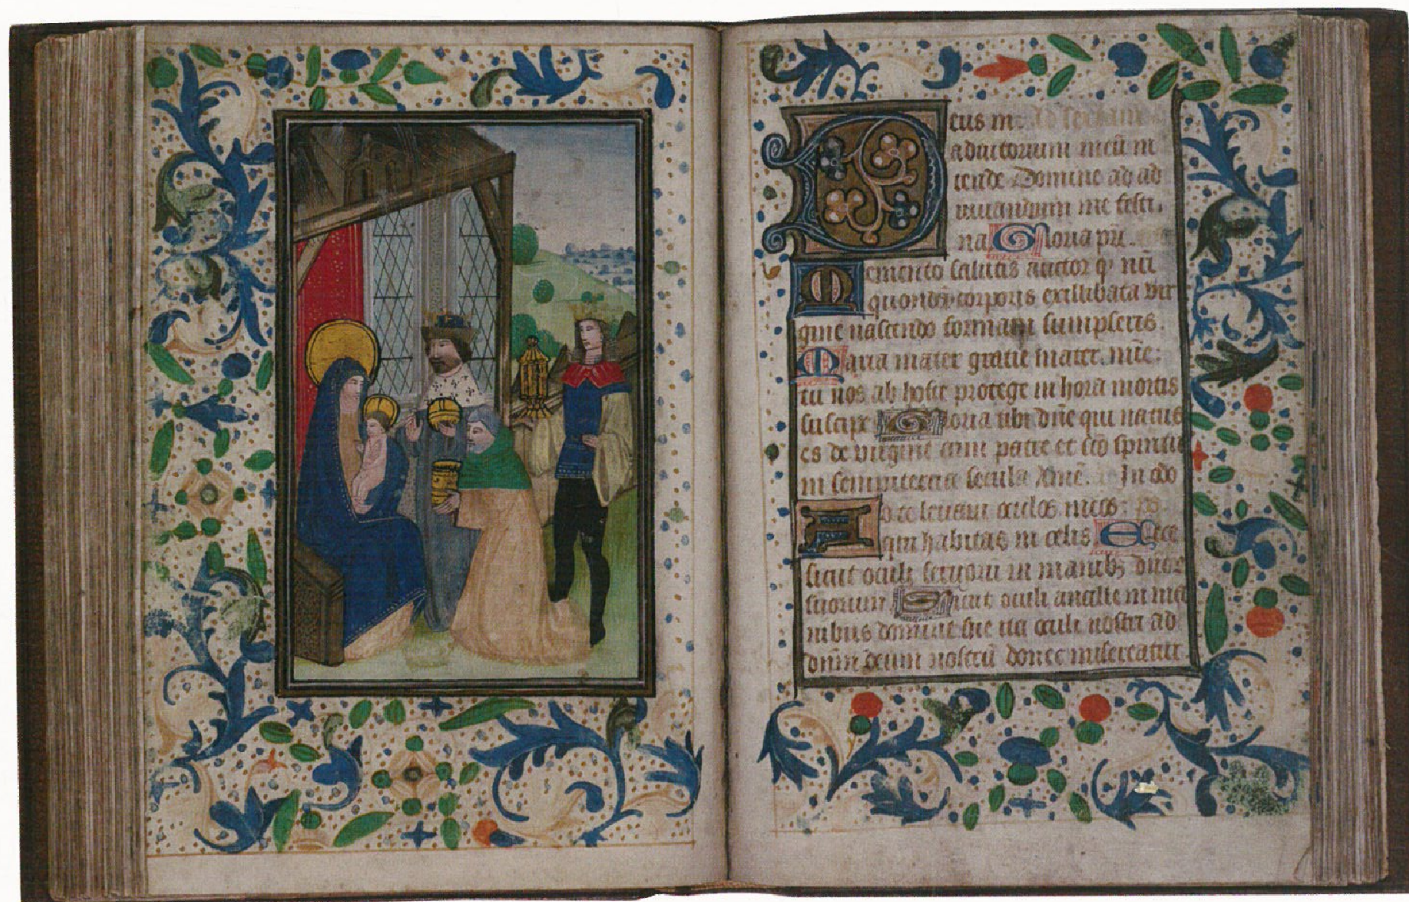 Deus in
adiutorium meū in
tende Domine ad ad
iuuandum me festi.
na Gloria pr̄i.
Memento salutis auctor qʾ nr̄i
quondā corporis ex illibata vir
gine nascendo formam sumpseris.
Maria mater gratie mater. mīe:
tu nos ab hoste protege in hora mortis
suscipe Gloria tibi dn̄e qui natus
es de virgine cum patre et scō spiritu
in sempiterna secula Amē. In do
Ad te leuaui oculos meos:
qui habitas in celis Ecce
sicut oculi seruorū in manibʒ dn̄or
suorum Sicut oculi ancille in ma
nibus domine sue ita oculi nostri ad
dn̄m deum nostrū donec misereatur.